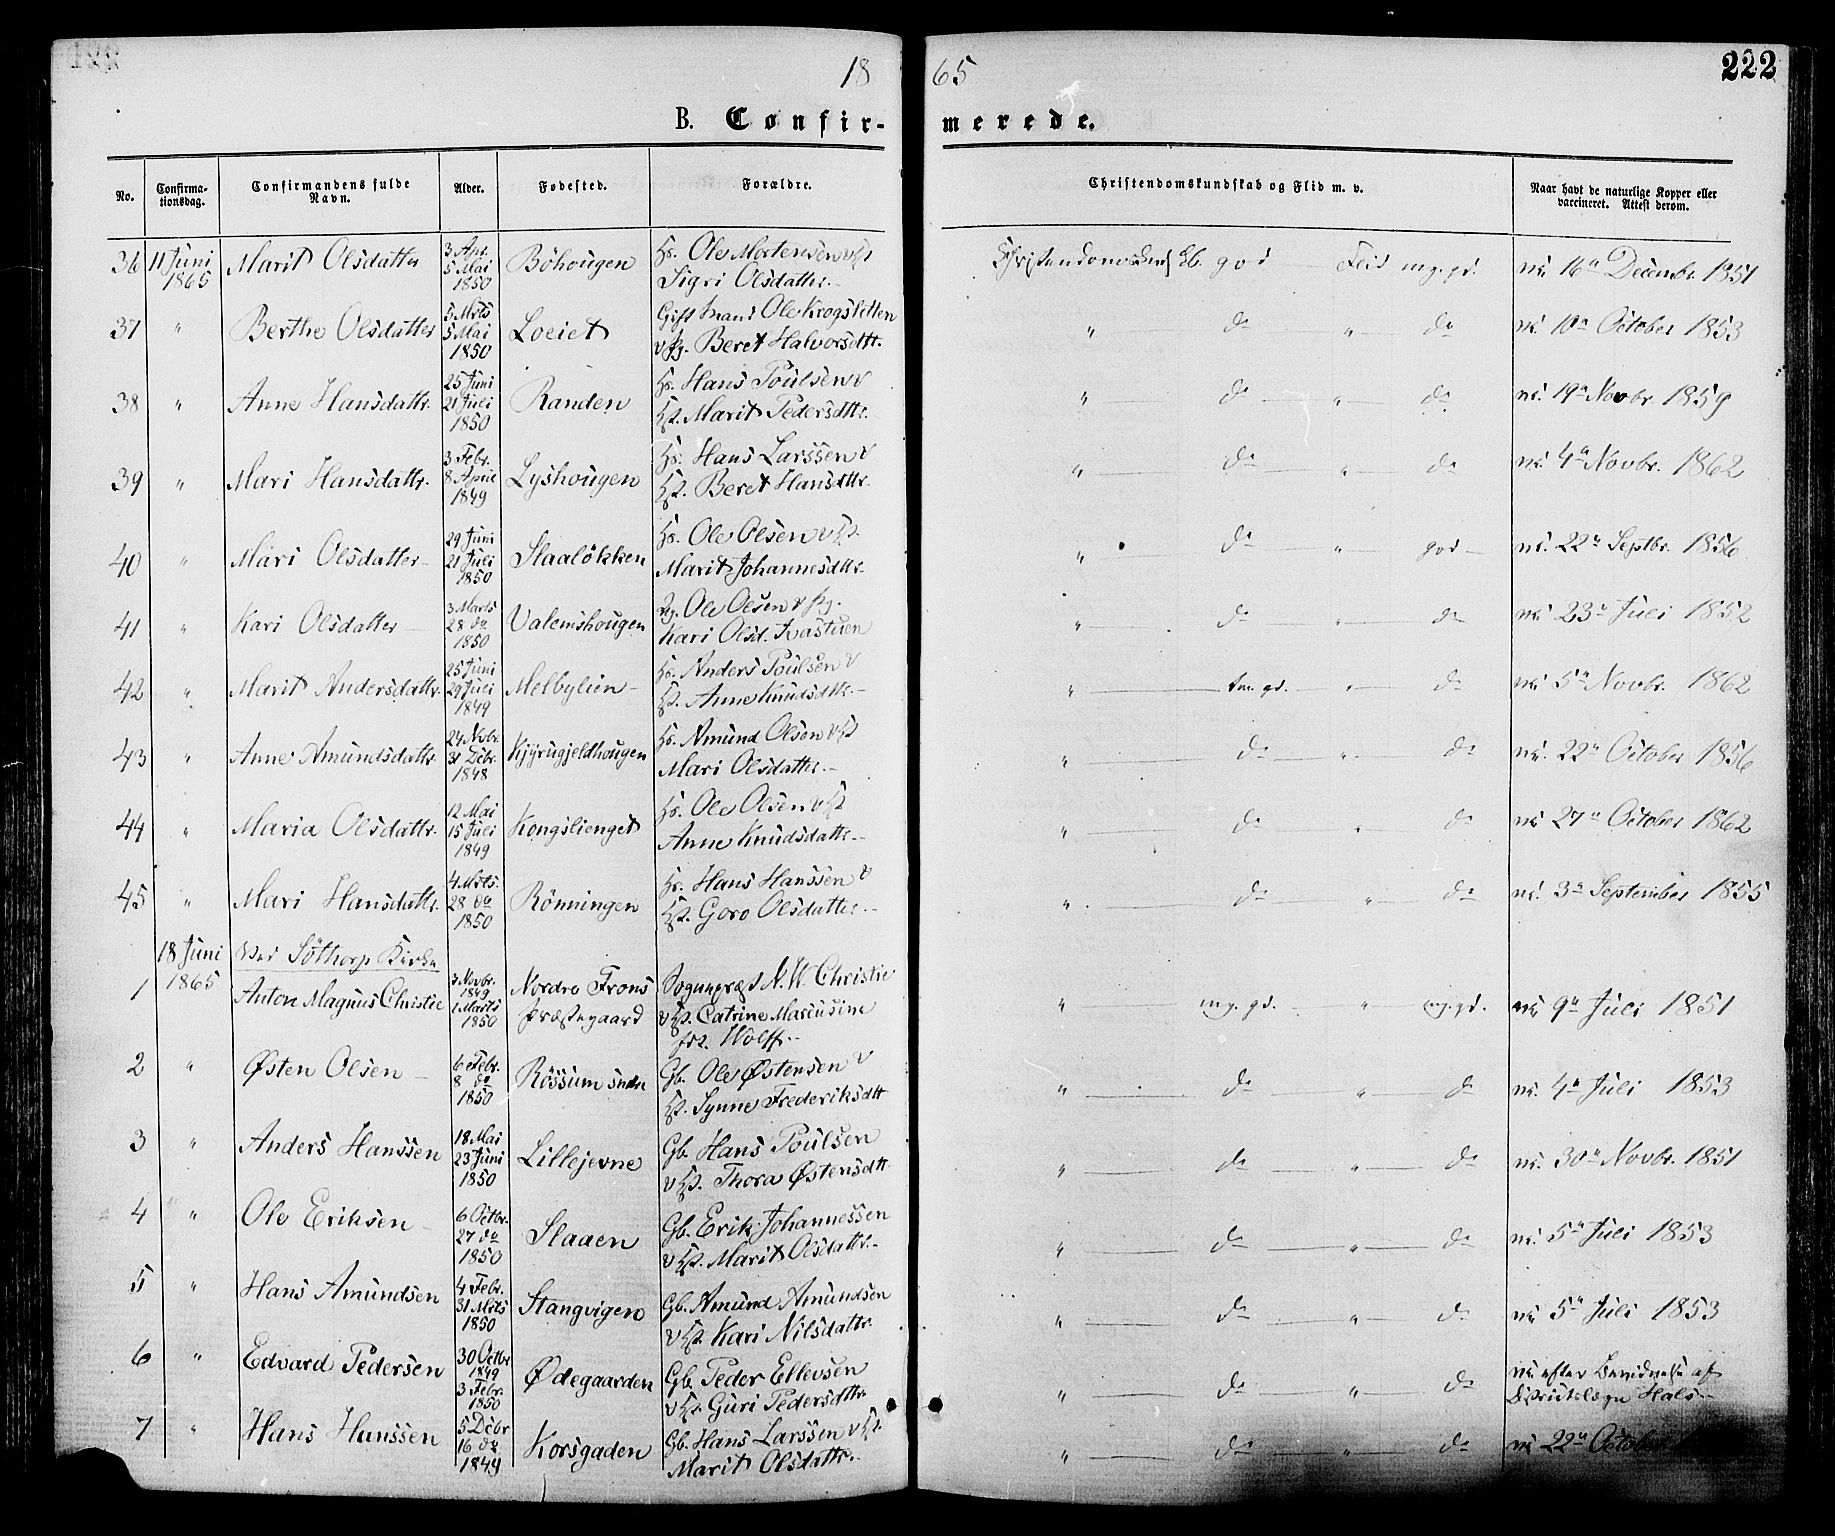 18 65 222
B. Confir- merede.
No. Confirma-tionsdag. Confirmandens fulde Navn. Alder. Fødested. Forældre. Christendomskundskab og Flid m. v. Naar havt de naturlige Kopper eller vaccineret. Attest derom.
36 11 Juni 1865 Marit Olsdatter 3 Apr. 5 Mai 1850 Böhougen Hs. Ole Mortensen v Hst. Sigri Olsdatter. Christendomskundskb. god Flid mg. gd. 16de Decembr. 1851
37 " Berthe Olsdatter 3 Mrts 5 Mai 1850 Loeiet Gift Mand Ole Krogsletten v Pg. Beret Halvorsdtt. " do " do 10de October 1853
38 " Anne Hansdattr. 25 Juni 21 Juli 1850 Randen Hs. Hans Poulsen v Hst. Marit Pedersdttr. " do " do 19de Novbr. 1859
39 " Mari Hansdattr. 3 Febr. 8 April 1849 Lyshougen Hs. Hans Larssen v Hst. Beret Hansdttr. " do " do 4de Novbr. 1862
40 " Mari Olsdatter 29 Juni 21 Juli 1850 Slaalökken Hs. Ole Olsen v Hst. Marit Johannesdttr. " do " god 22de Septbr. 1856
41 " Kari Olsdatter 3 Marts 28 do 1850 Valemshougen Ug. Ole Olsen v Pg. Kari Olsd. " do " do 23de Juli 1852
42 " Marit Andersdattr. 25 Juni 29 Juli 1849 Melbylien Hs. Anders Poulsen v Hst. Anne Knudsdttr. " tm. gd. " do 5de Novbr. 1862
43 " Anne Amundsdattr. 24 Novbr. 31 Decbr. 1848 Kjyrugjeldhougen Hs. Amund Olsen v Hst Mari Olsdatter. " do " do 22de October 1856
44 " Maria Olsdattr. 12 Mai 15 Juli 1849 Kongslienget Hs. Ole Olsen v Hst Anne Knudsdattr. " do " do 27de October 1862
45 " Mari Hansdattr. 4 Mrts. 28 do 1850 Rönningen Hs. Hans Hanssen v Hst. Goro Olsdatter. " do " do 3de September 1855
18 Juni 1865 Ved Söthorp Kirke
1 Anton Magnus Christie 3 Novbr. 1849 1 Marts 1850 Nordre Frons Præstegaard Sognepræst N. W. Christie v Hst. Catrine Marcusine fdt. Wolff. " mg. gd. " mg. gd. 9de Juli 1851
2 " Østen Olsen 6 Febr. 8 do 1850 Rössum søndre Gb. Ole Østensen v Hst. Synne Frederiksdtt " do " do 4de Juli 1853
3 " Anders Hanssen 18 Mai 23 Juni 1850 Lillejevne Gb. Hans Poulsen v Hst. Thora Østensdtt " do " do 30de Novbr. 1851
4 " Ole Eriksen 6 Octbr. 27 do 1850 Slaaen Gb. Erik Johannessen v Hst. Marit Olsdattr. " do " do 5de Juli 1853
5 " Hans Amundsen 4 Febr. 31 Mrts 1850 Stangvigen Gb. Amund Amundsen v Hst. Kari Nilsdattr. " do " do 5de Juli 1853
6 " Edvard Pedersen 30 Octbr 1849 3 Febr. 1850 Ødegaarden Gb. Peder Ellevsen v Hst. Guri Pedersdttr. " do " do efter af Distriktslæge
7 " Hans Hanssen 5 Decbr 16 do 1849 Korsgaden Gb. Hans Larssen v Hst. Marit Olsdattr. " do " do 22de October